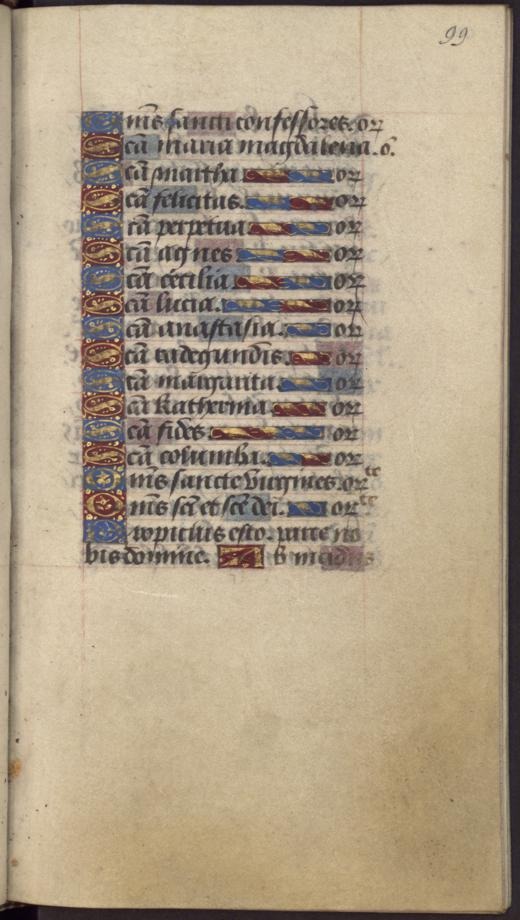 99
Oms sancti confessores. or
Scā maria magdalena. o.
Scā martha or
Scā felicitas. or
Scā perpetua or
Scā agnes or
Scā cecilia or
Scā lucia. or
Scā anastasia. or
Scā radegundis. or
Scā margarita or
Scā katherina or
Scā fides or
Scā columba. or
Oms sancte virgines. or
Oms scī et scē dei. or
Propicius esto. parce no
bis domine. A b insidiis